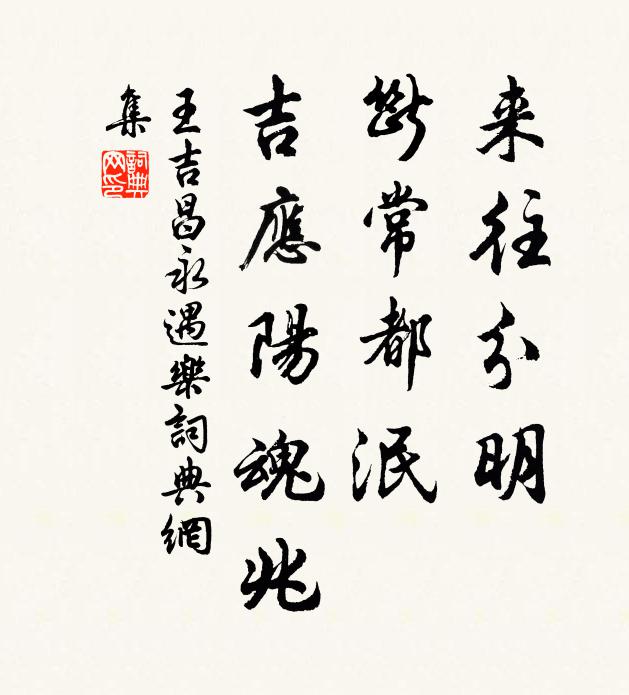 来往分明
斷常都泯
吉應陽魂兆
王吉昌永遇樂詞典網
集
詞典
网印